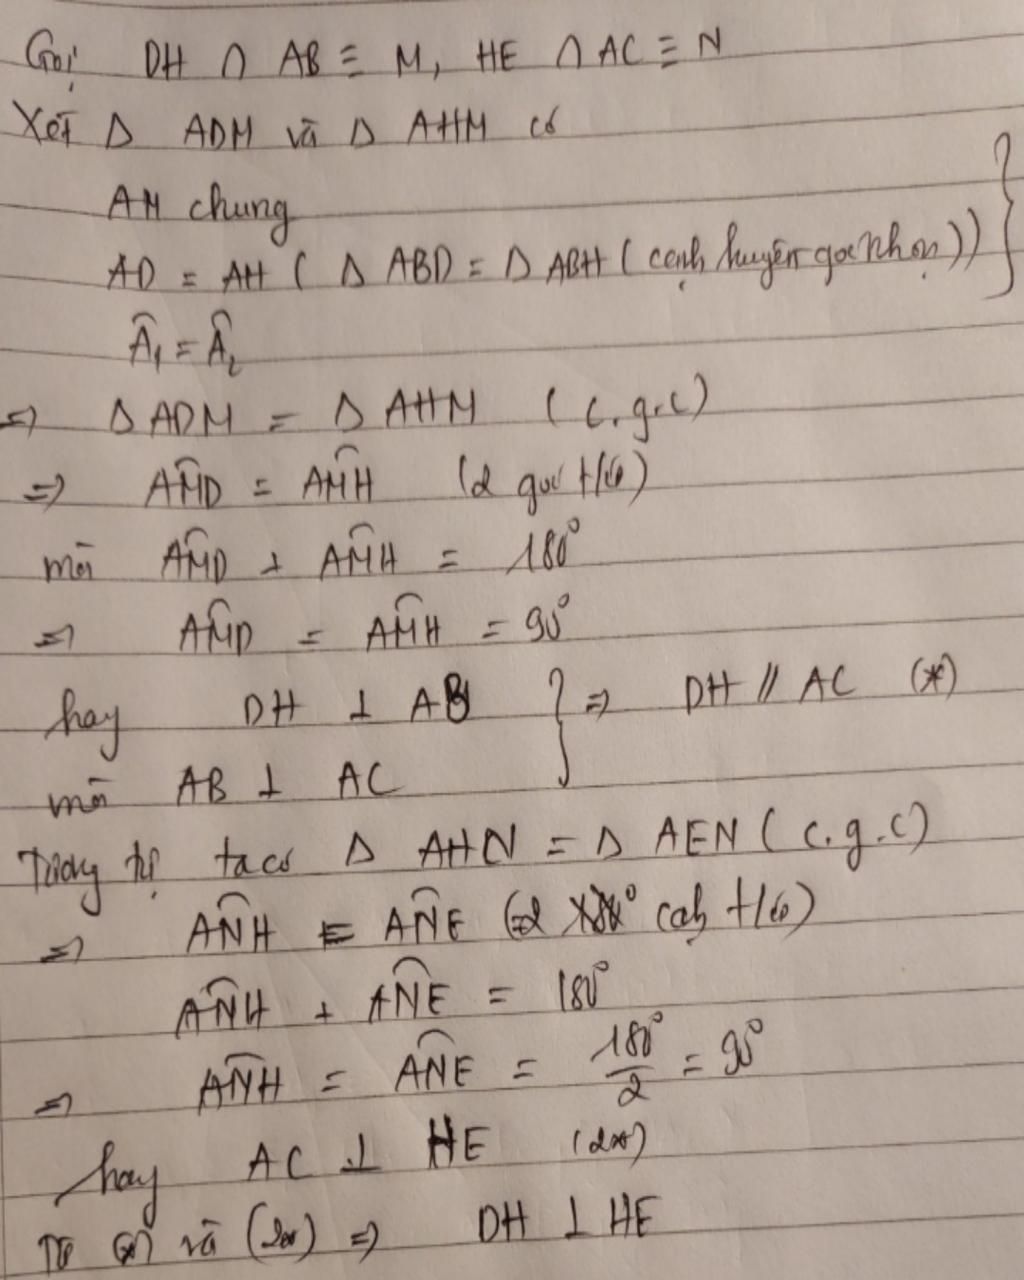 Gọi DH ∩ AB ≡ M, HE ∩ AC ≡ N
Xét Δ ADM và Δ AHM có
AM chung
AD = AH ( Δ ABD = Δ ABH ( cạnh huyền góc nhọn))
Â₁ = Â₂
=> Δ ADM = Δ AHM ( c.g.c)
=> AM̂D = AM̂H (2 góc t/ứ)
mà AM̂D + AM̂H = 180°
=> AM̂D = AM̂H = 90°
hay DH ⊥ AB } => DH // AC (*)
mà AB ⊥ AC
Tương tự ta có Δ AHN = Δ AEN ( c.g.c)
=> AN̂H = AN̂E (2 cạh t/ứ)
AN̂H + AN̂E = 180°
=> AN̂H = AN̂E = 180°/2 = 90°
hay AC ⊥ HE (2*)
Từ (*) và (2*) => DH ⊥ HE